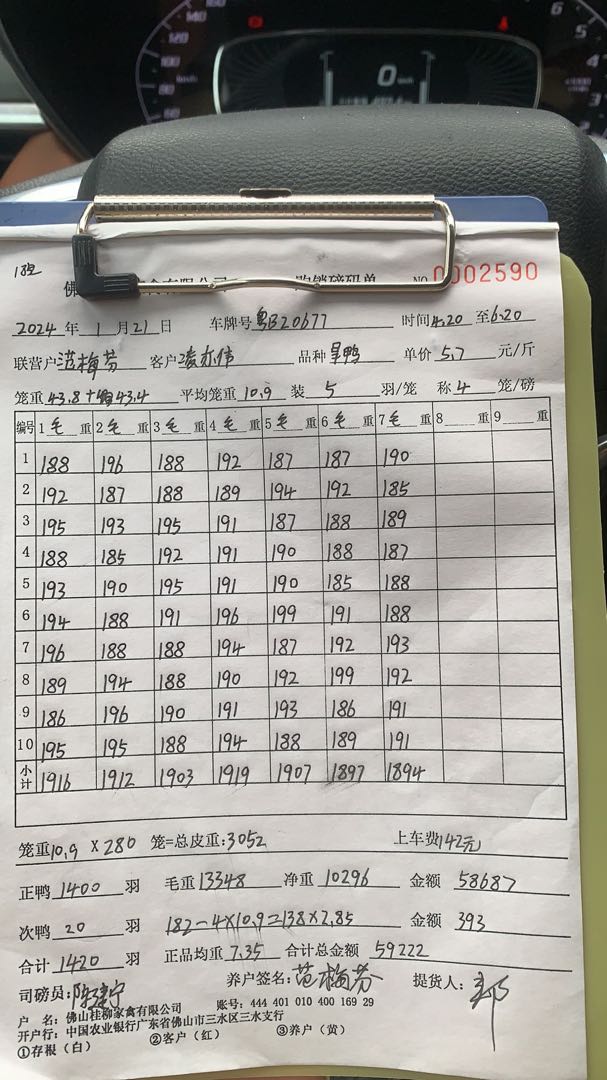 0
km/h
140
120
100
80
60
6
5
4
3
2
佛 禽有限公司 购销磅码单 NO 0002590
2024 年 1 月 21 日 车牌号 粤B20677 时间 4.20 至 6.20
联营户 范梅芬 客户 凌亦伟 品种 旱鸭 单价 5.7 元/斤
笼重 43.8 + 43.4 平均笼重 10.9 装 5 羽/笼 称 4 笼/磅
编号 1 毛 重 2 毛 重 3 毛 重 4 毛 重 5 毛 重 6 毛 重 7 毛 重 8 重 9 重
1 188 196 188 192 187 187 190
2 192 187 188 189 194 192 185
3 195 193 195 191 187 188 189
4 188 185 192 191 190 188 187
5 193 190 195 191 190 185 188
6 194 188 191 196 199 191 188
7 196 188 188 194 187 192 193
8 189 194 188 190 192 199 192
9 186 196 190 191 193 186 191
10 195 195 188 194 188 189 191
小计 1916 1912 1903 1919 1907 1897 1894
笼重 10.9 × 280 笼=总皮重: 3052 上车费 142元
正鸭 1400 羽 毛重 13348 净重 10296 金额 58687
次鸭 20 羽 182-4×10.9=138×2.85 金额 393
合计 1420 羽 正品均重 7.35 合计总金额 59222
司磅员: 养户签名: 范梅芬 提货人:
户 名: 佛山桂柳家禽有限公司 账号: 444 401 010 400 169 29
开户行: 中国农业银行广东省佛山市三水区三水支行
①存根（白） ②客户（红） ③养户（黄）